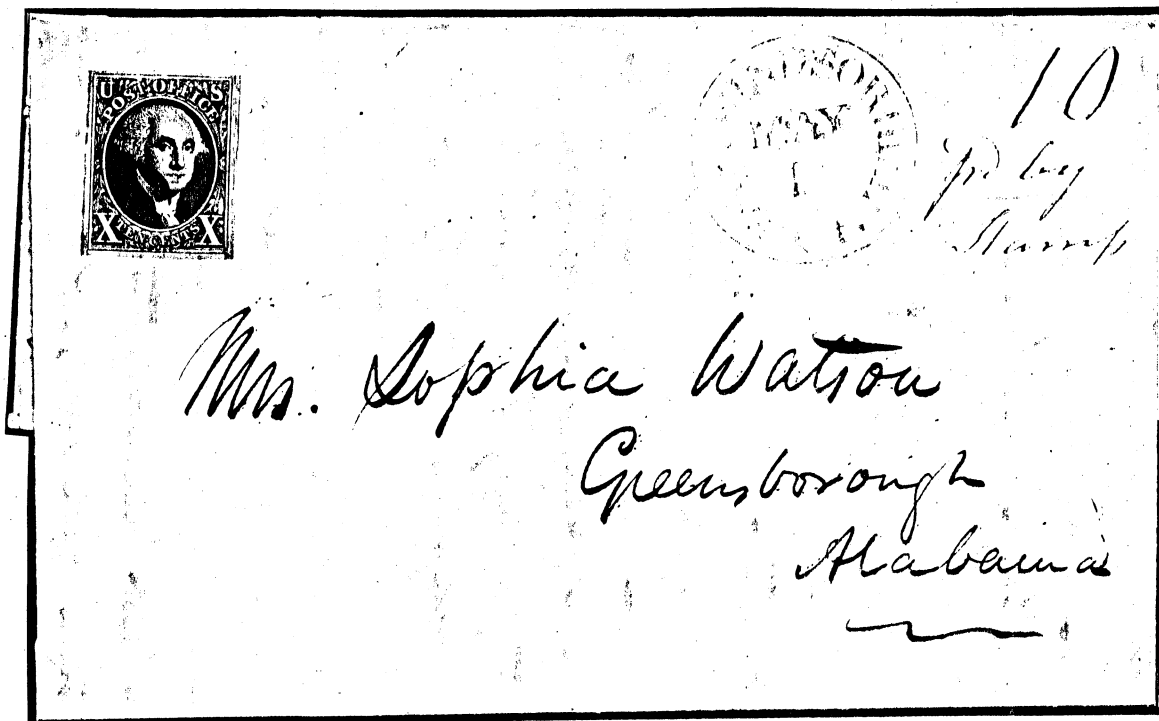 U S
POST OFFICE
X TEN CENTS X
MAY
1
10
pd by
Stamp
Mrs. Sophia Watson
Greensborough
Alabama